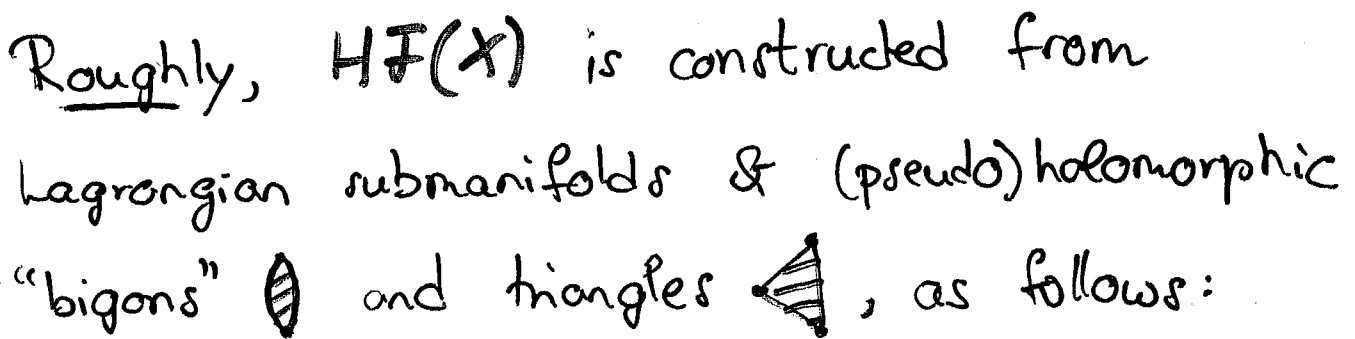 Roughly, HF(X) is constructed from
Lagrangian submanifolds & (pseudo)holomorphic
“bigons” and triangles , as follows: